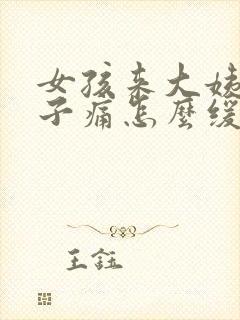 女孩来大姨
子痛怎麼缓
王鈺